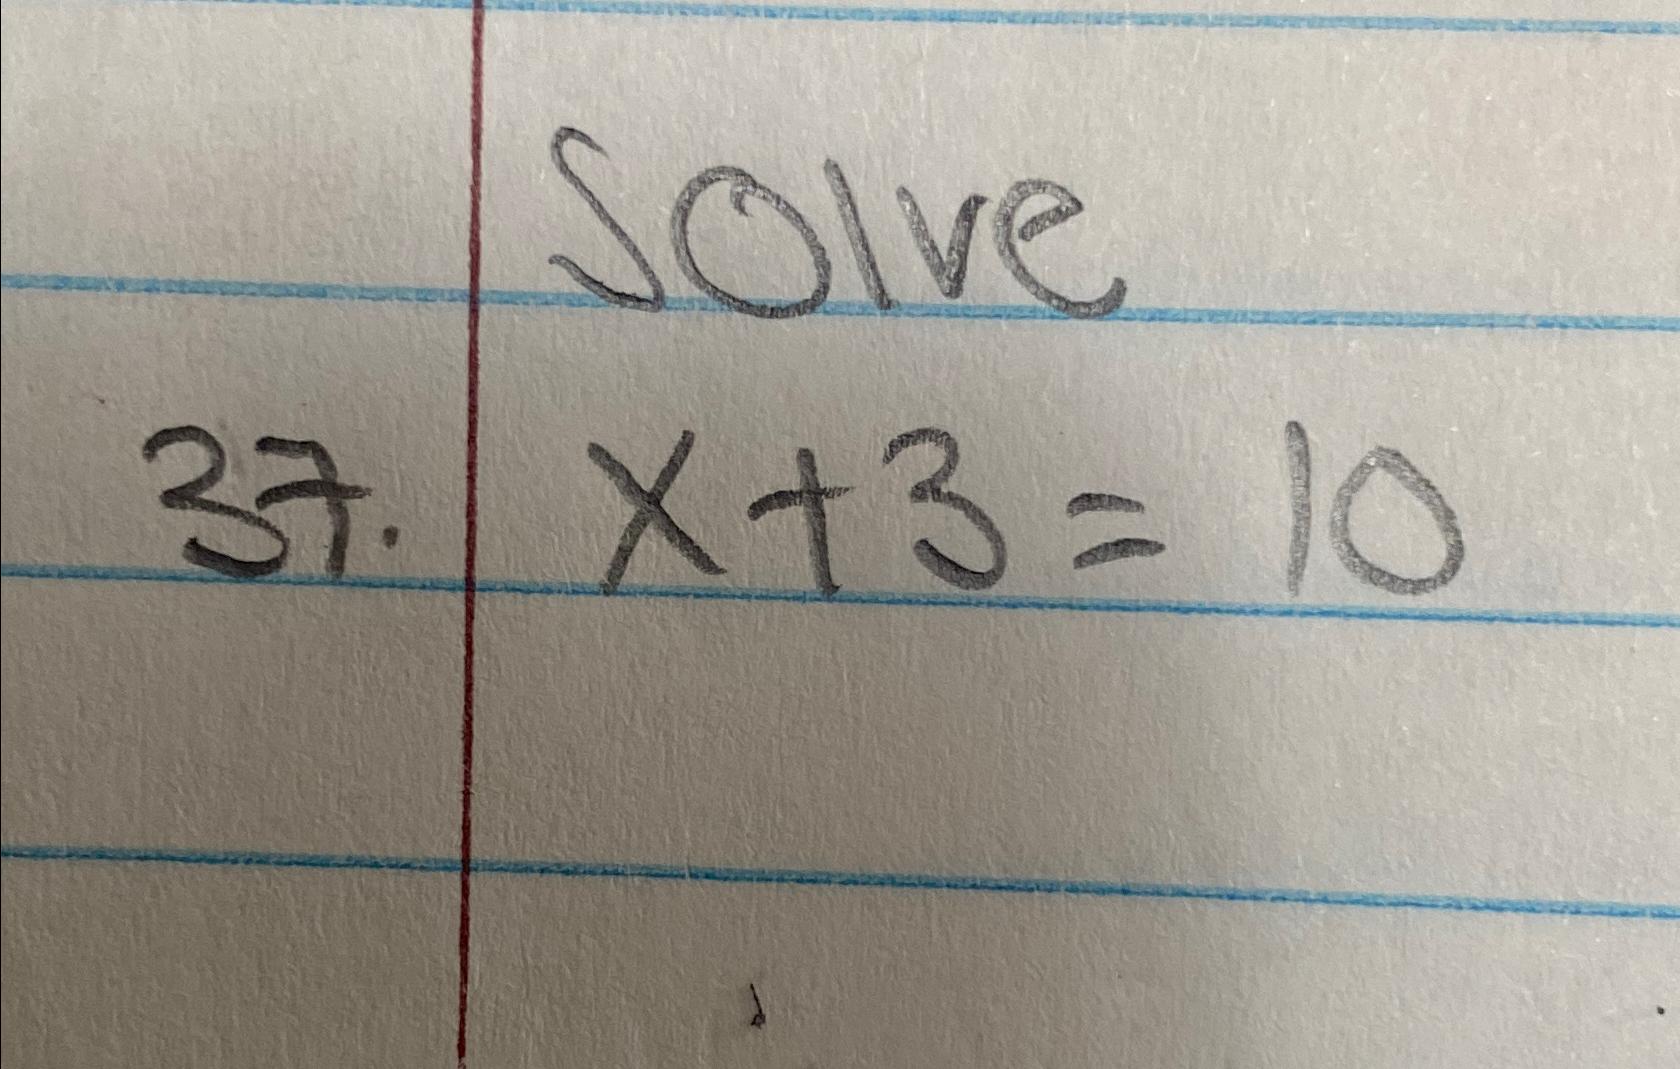 Solve
37. x+3=10